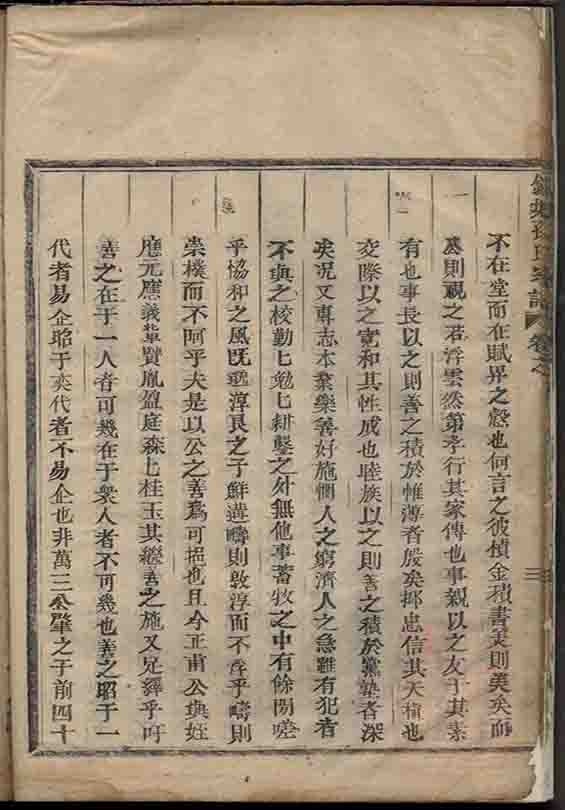 不在堂而在賦畀之慤也何言之彼積金積書美則美矣而
墓則視之若浮雲然第孝行其家傳也事親以之友于其素
有也事長以之則善之積於帷薄者殷矣抑忠信其天植也
交際以之寬和其性成也睦族以之則善之積於黨塾者深
矣況又專志本業樂善好施憫人之窮濟人之急雖有犯者
不與之校勤匕勉匕耕鑿之外無他事畜牧之中有餘閒嗟
乎協和之風既邈淳良之子鮮遘疇則敦淳而不乎疇則
崇樸而不阿乎夫是以公之善為可挹也且今正甫公與姪
應元應義輩賢胤盈庭森匕桂玉其繼善之施又克繹乎吁
善之在于一人者可幾在于衆人者不可幾也善之昭于一
代者易企昭于奕代者不易企也非萬三公肇之于前四十
氏宗譜 卷之
三